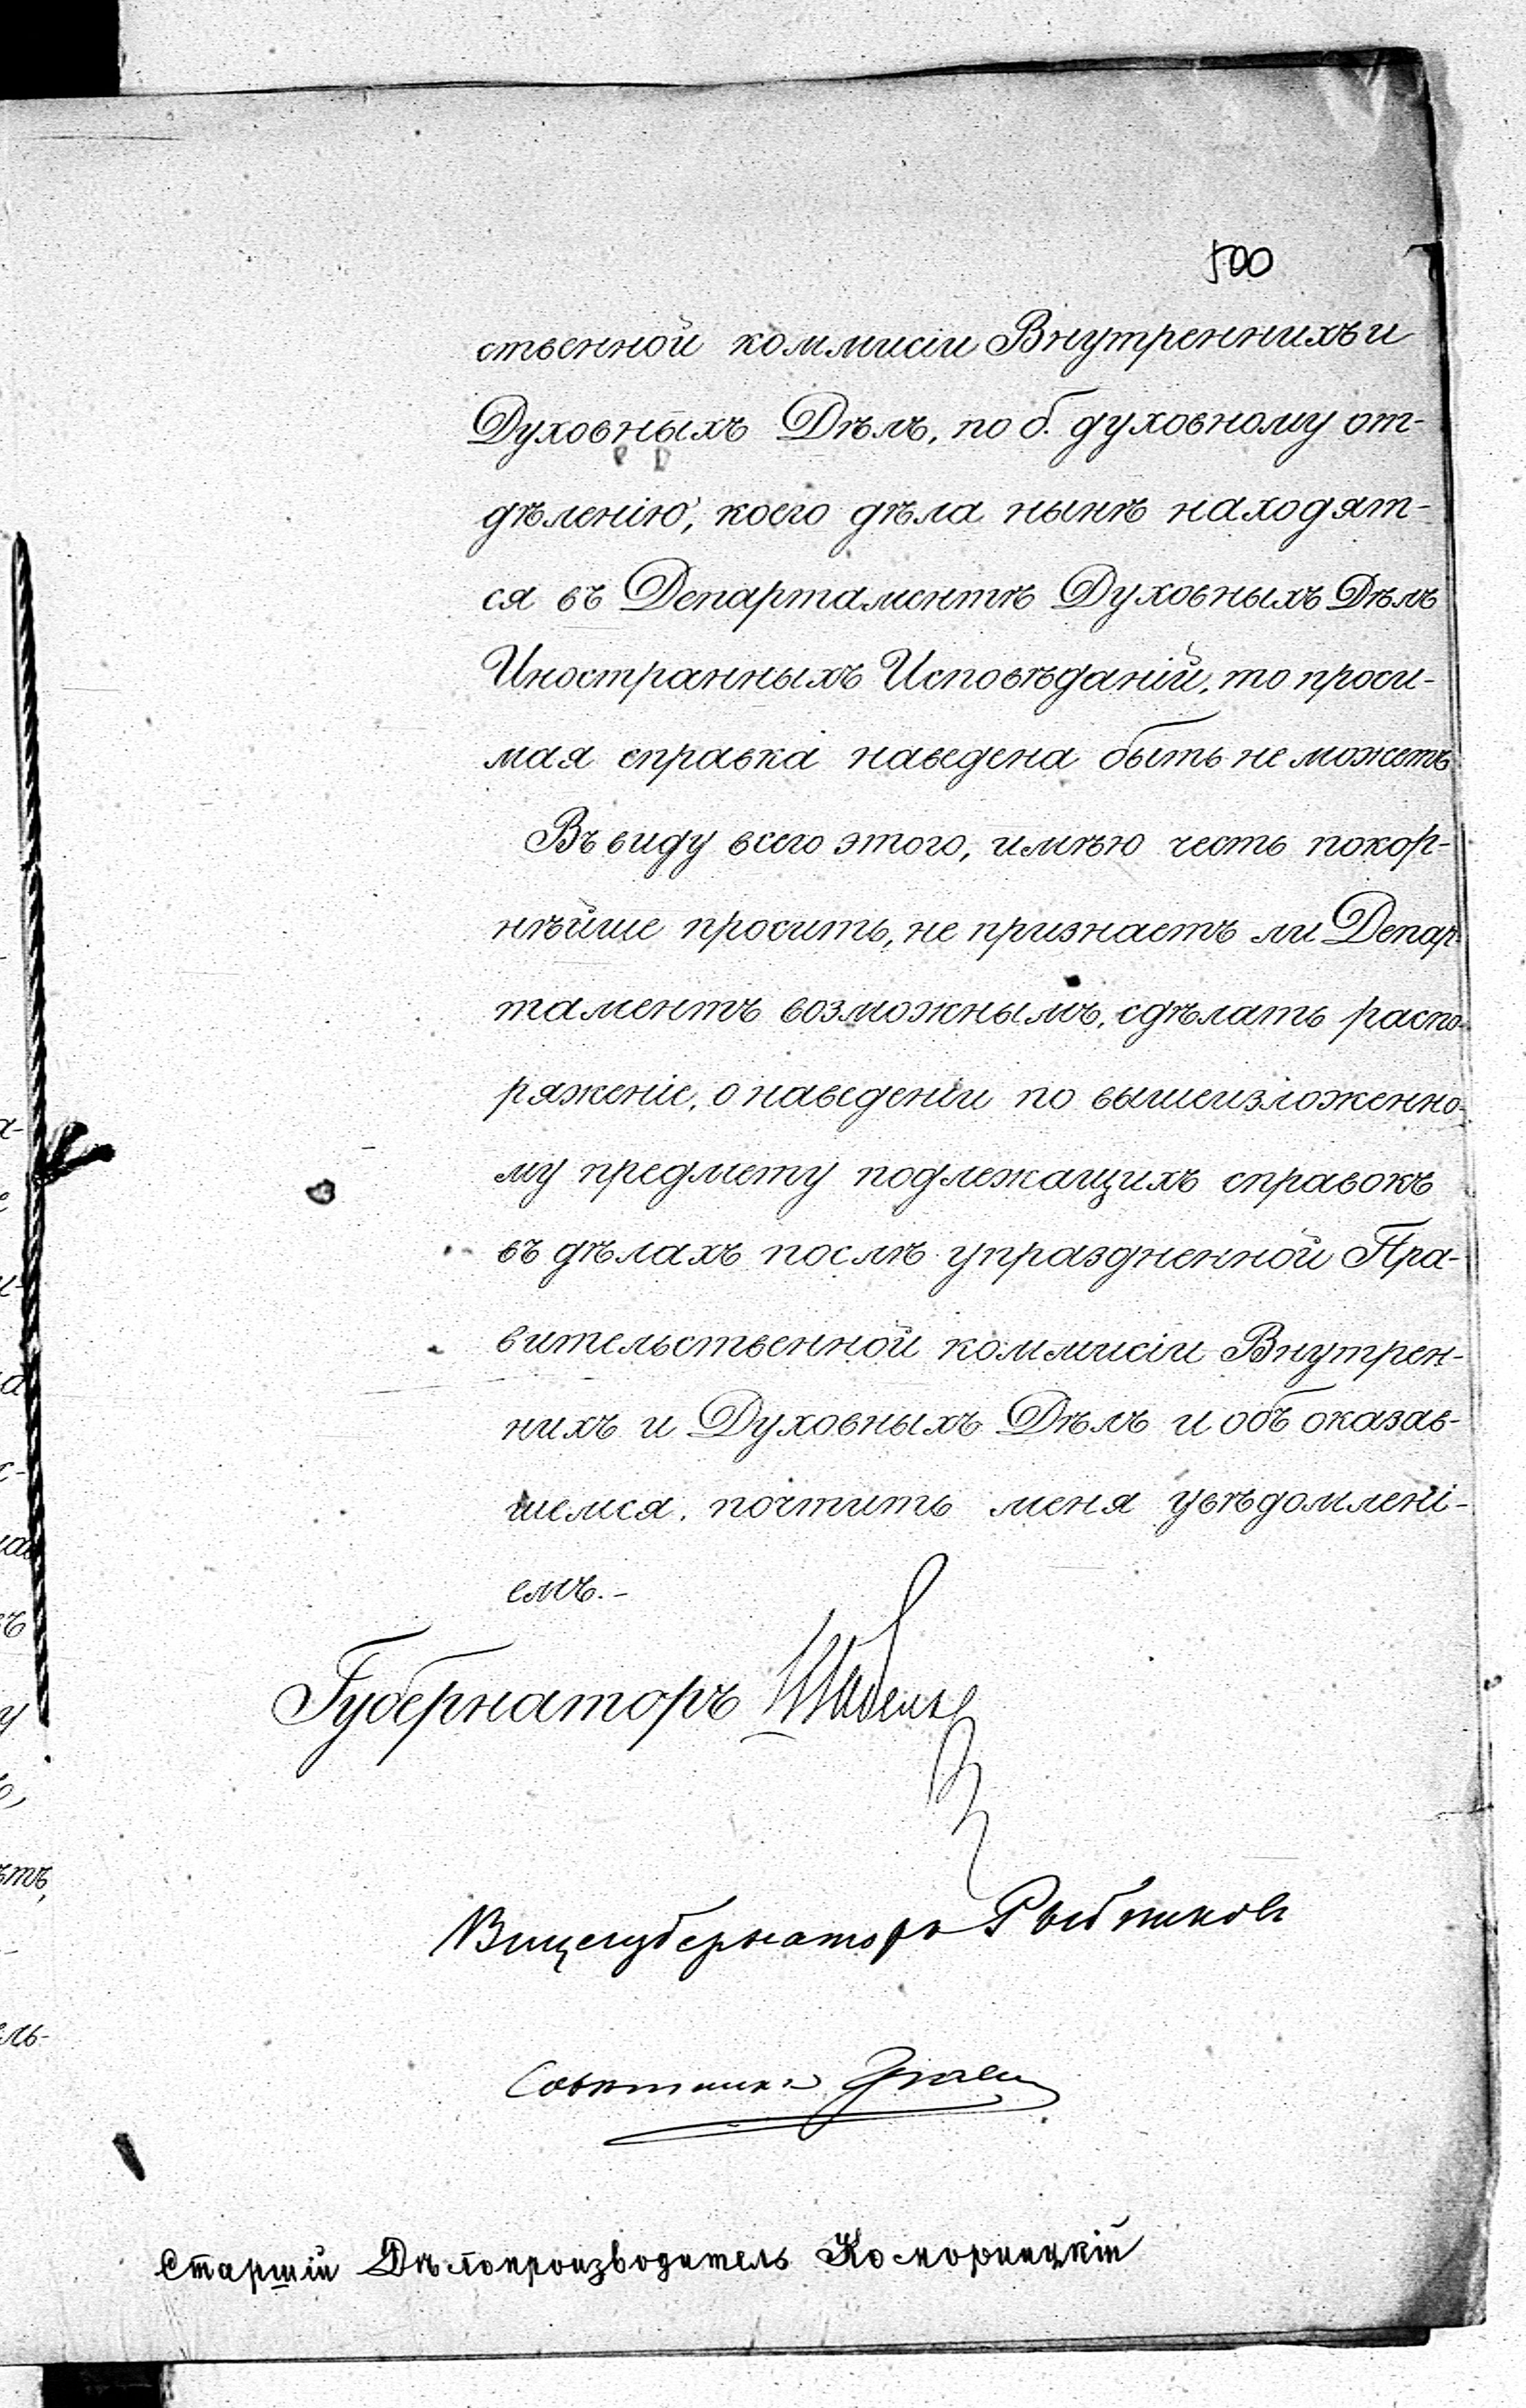 500
ственной коммисіи Внутреннихъ и
Духовныхъ Дѣлъ, по б. духовному от-
дѣленію, коего дѣла нынѣ находят-
ся въ Департаментѣ Духовныхъ Дѣлъ
Иностранныхъ Исповѣданій, то проси-
мая справка наведена быть не можетъ
Въ виду всего этого, имѣю честь покор-
нѣйше просить, не признаетъ ли Депар-
таментъ возможнымъ, сдѣлать распо-
ряженіе, о наведеніи по вышеизложенно-
му предмету подлежащихъ справокъ
въ дѣлахъ послѣ упраздненной Пра-
вительственной коммисіи Внутрен-
нихъ и Духовныхъ Дѣлъ и объ оказав-
шемся, почтить меня увѣдомлені-
емъ.-
Губернаторъ
Вицегубернаторъ Рыбниковъ
Совѣтникъ
Старшій Дѣлопроизводитель Коморницкій